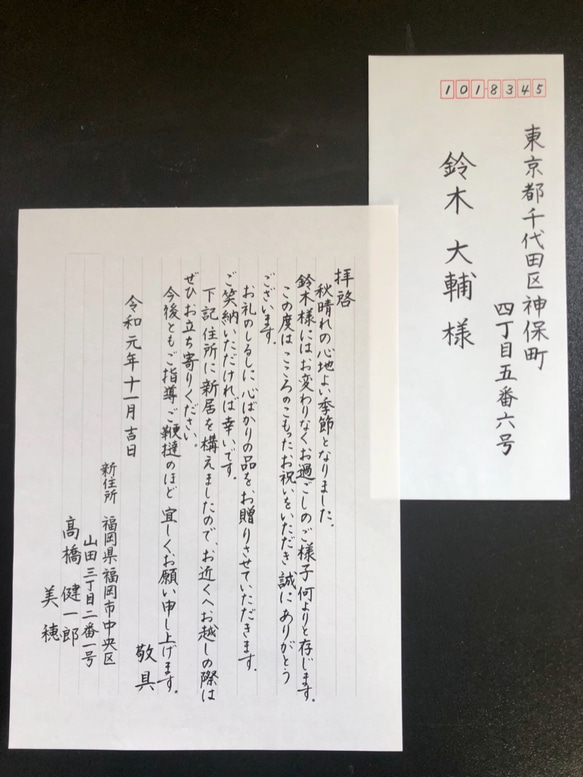 1018345
東京都千代田区神保町
四丁目五番六号
鈴木 大輔 様
拝啓
秋晴れの心地よい季節となりました。
鈴木様にはお変わりなくお過ごしのご様子何よりと存じます。
この度はこころのこもったお祝いをいただき誠にありがとう
ございます。
お礼のしるしに心ばかりの品をお贈りさせていただきます。
ご笑納いただければ幸いです。
下記住所に新居を構えましたので、お近くへお越しの際は
ぜひお立ち寄りください。
今後ともご指導、ご鞭撻のほど宜しくお願い申し上げます。
敬具
令和元年十一月吉日
新住所 福岡県福岡市中央区
山田三丁目二番一号
高橋 健一郎
美穂